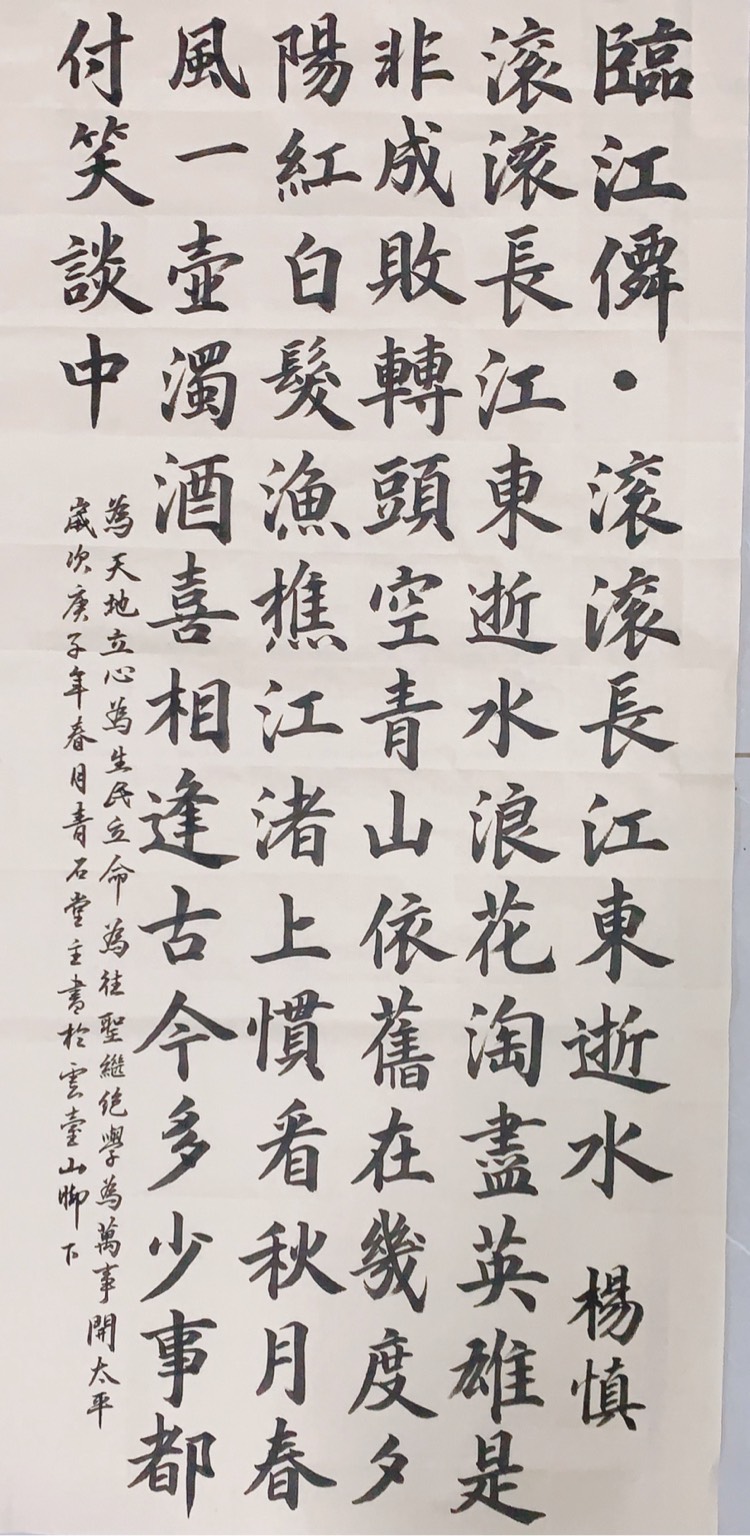 臨江僊・滚滚長江東逝水 楊慎
滚滚長江東逝水浪花淘盡英雄是
非成敗轉頭空青山依舊在幾度夕
陽紅白髮漁樵江渚上慣看秋月春
風一壺濁酒喜相逢古今多少事都
付笑談中
為天地立心為生民立命為往聖繼絕學為萬事開太平
歲次庚子年春月青石堂主書於雲臺山脚下